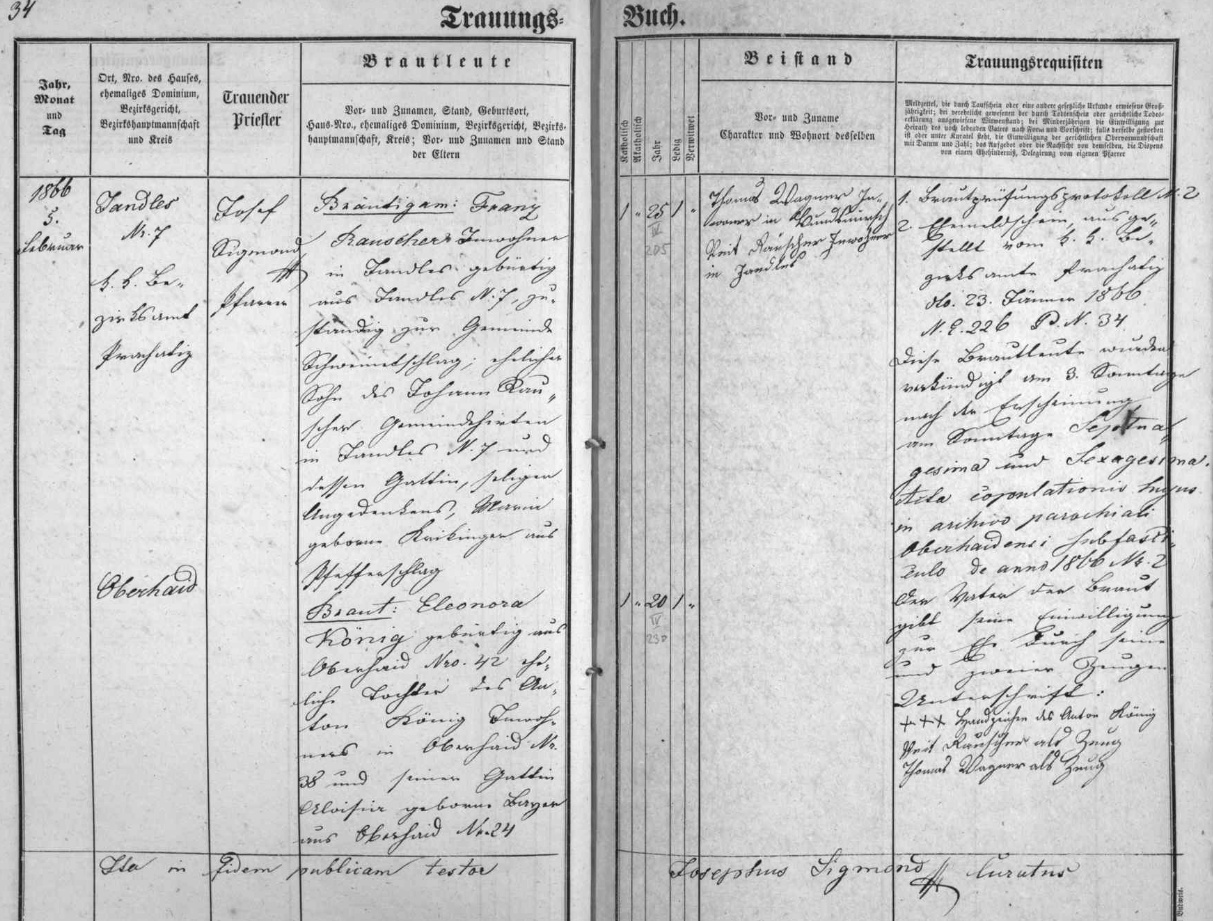 34
Trauungs-Buch.
Jahr,
Monat
und
Tag
Ort, Nro. des Hauses,
ehemaliges Dominium,
Bezirksgericht,
Bezirkshauptmannschaft
und Kreis
Trauender
Priester
Brautleute
Vor- und Zunamen, Stand, Geburtsort,
Haus-Nro., ehemaliges Dominium, Bezirksgericht, Bezirks-
hauptmannschaft, Kreis; Vor- und Zunamen und Stand
der Eltern
Katholisch
Akatholisch
Jahr
Ledig
Verwitwet
Beistand
Vor- und Zuname
Charakter und Wohnort desselben
Trauungsrequisiten
Meldzettel, die durch Taufschein oder eine andere gesetzliche Urkunde erwiesene Groß-
jährigkeit; bei verehelicht gewesenen der durch Todtenschein oder gerichtliche Todes-
erklärung ausgewiesene Witwerstand; bei Minderjährigen die Einwilligung zur
Heirath des noch lebenden Vaters nach Form und Vorschrift; falls derselbe gestorben
ist oder unter Kuratel steht, die Einwilligung der gerichtlichen Obervormundschaft
mit Datum und Zahl; das Aufgebot oder die Nachsicht von demselben, die Dispens
von einem Ehehinderniß, Delegirung vom eigenen Pfarrer
1866
5.
Februar
Jandles
Nr. 7
k. k. Be-
zirksamt
Prachatiz
Josef
Sigmond
Pfarrer
Bräutigam: Franz
Rauscher Inwohner
in Jandles gebürtig
aus Jandles N. 7, zu-
ständig zur Gemeinde
Schweinetschlag; ehelicher
Sohn des Johann Rau-
scher Gemeindehirten
in Jandles N. 7 und
dessen Gattin, seligen
Angedenkens, Maria
geborne Kreikinger aus
Pfefferschlag
1 " 25 1 "
IV
205
Thomas Wagner In-
wohner in
Veit Rauscher Inwohner
in Jandles
1. Brautprüfungsprotokoll N. 2
2. Ehemeldschein ausge-
stellt vom k. k. Be-
zirksamte Prachatiz
ddo. 23. Jänner 1866
N. E. 226 P. N. 34
Diese Brautleute wurden
verkündigt am 3. Sonntage
nach der Erscheinung
am Sonntage Septua-
gesima und Sexagesima.
Acta copulationis hujus
in archivo parochiali
Oberhaidensi sub fasci-
culo de anno 1866 Nr. 2
Oberhaid
Braut: Eleonora
König gebürtig aus
Oberhaid Nro. 42 ehe-
liche Tochter des An-
ton König Inwoh-
ners in Oberhaid Nr.
38 und seiner Gattin
Aloisia geborne Bayer
aus Oberhaid Nr. 24
1 " 20 1 "
IV
230
Der Vater der Braut
gibt seine Einwilligung
zur Ehe durch seine
und zweier Zeugen
Unterschrift:
+++ Handzeichen des Anton König
Veit Rauscher als Zeug
Thomas Wagner als Zeug
Ita in fidem publicam testor Josephus Sigmond Curatus